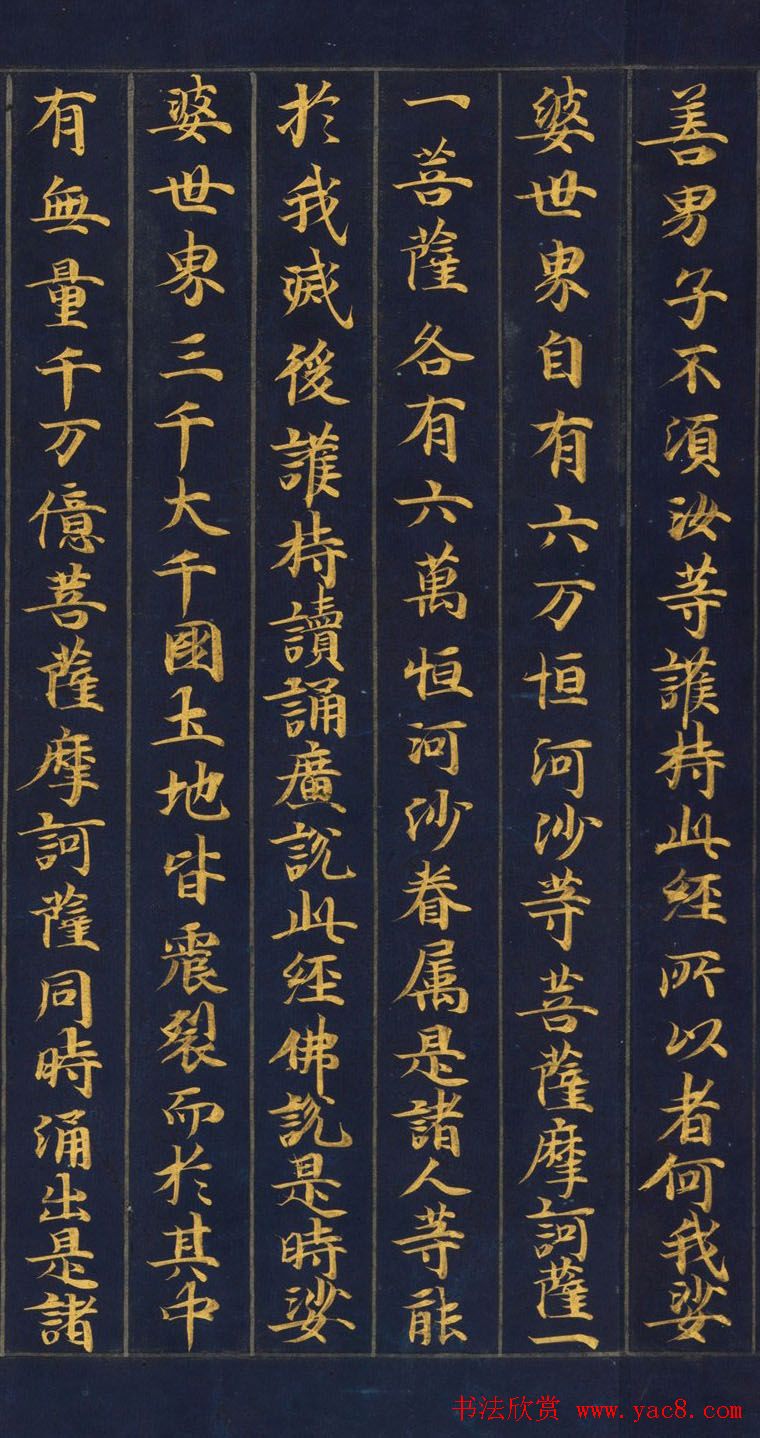 善男子不須汝等護持此經所以者何我娑
婆世界自有六万恒河沙等菩薩摩訶薩一
一菩薩各有六萬恒河沙眷属是諸人等能
於我滅後護持讀誦廣説此經佛説是時娑
婆世界三千大千國土地皆震裂而於其中
有無量千万億菩薩摩訶薩同時涌出是諸
书法欣赏 www.yac8.com